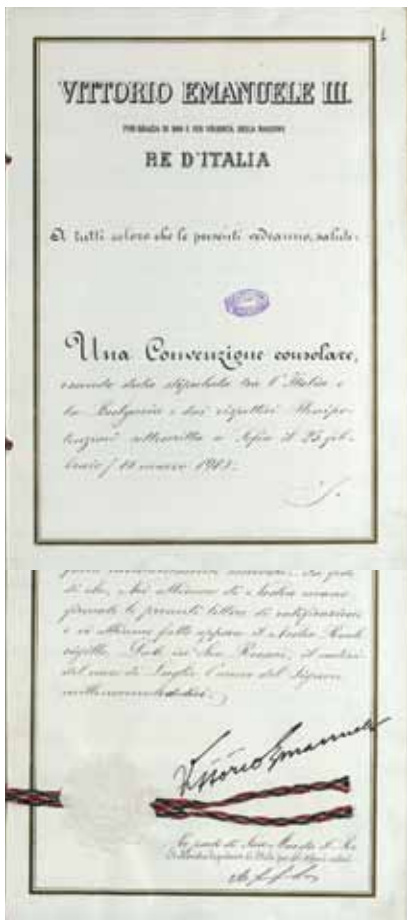 1
VITTORIO EMANUELE III.
PER GRAZIA DI DIO E PER VOLONTÀ DELLA NAZIONE
RE D'ITALIA
A tutti coloro che le presenti vedranno, salute.
Una Convenzione consolare,
essendo stata stipulata tra l'Italia e
la Bulgaria e dai rispettivi Plenipo-
tenziari sottoscritta a Sofia il 25 feb-
braio / 10 marzo
di che, Noi abbiamo di Nostra mano
firmato le presenti lettere di ratificazione
e vi abbiamo fatto apporre il Nostro Reale
sigillo. Date in
del mese di Luglio l'anno del Signore
Vittorio Emanuele
Per parte di Sua Maestà il Re